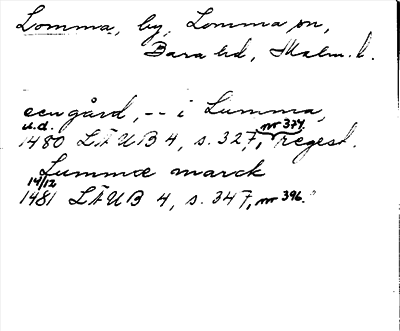 Lomma, by, Lomma sn,
Bara hd, Malm. l.
een gård, -- i Lumma,
u.d.
1480 LÄUB 4, s. 327, nr 374. regest.
Lummæ marck
14/12
1481 LÄUB 4, s. 347, nr 396.